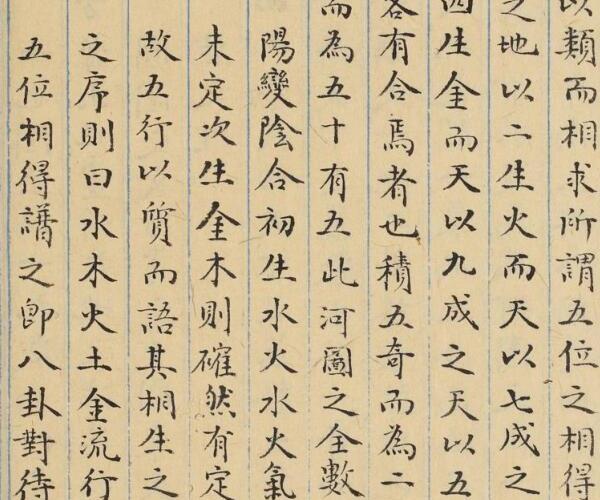 以類而相求所謂五位之相得
之地以二生火而天以七成之
四生金而天以九成之天以五
各有合焉者也積五奇而為二
而為五十有五此河圖之全數
陽變陰合初生水火水火氣
未定次生金木則確然有定
故五行以質而語其相生之
之序則曰水木火土金流行
五位相得譜之即八卦對待